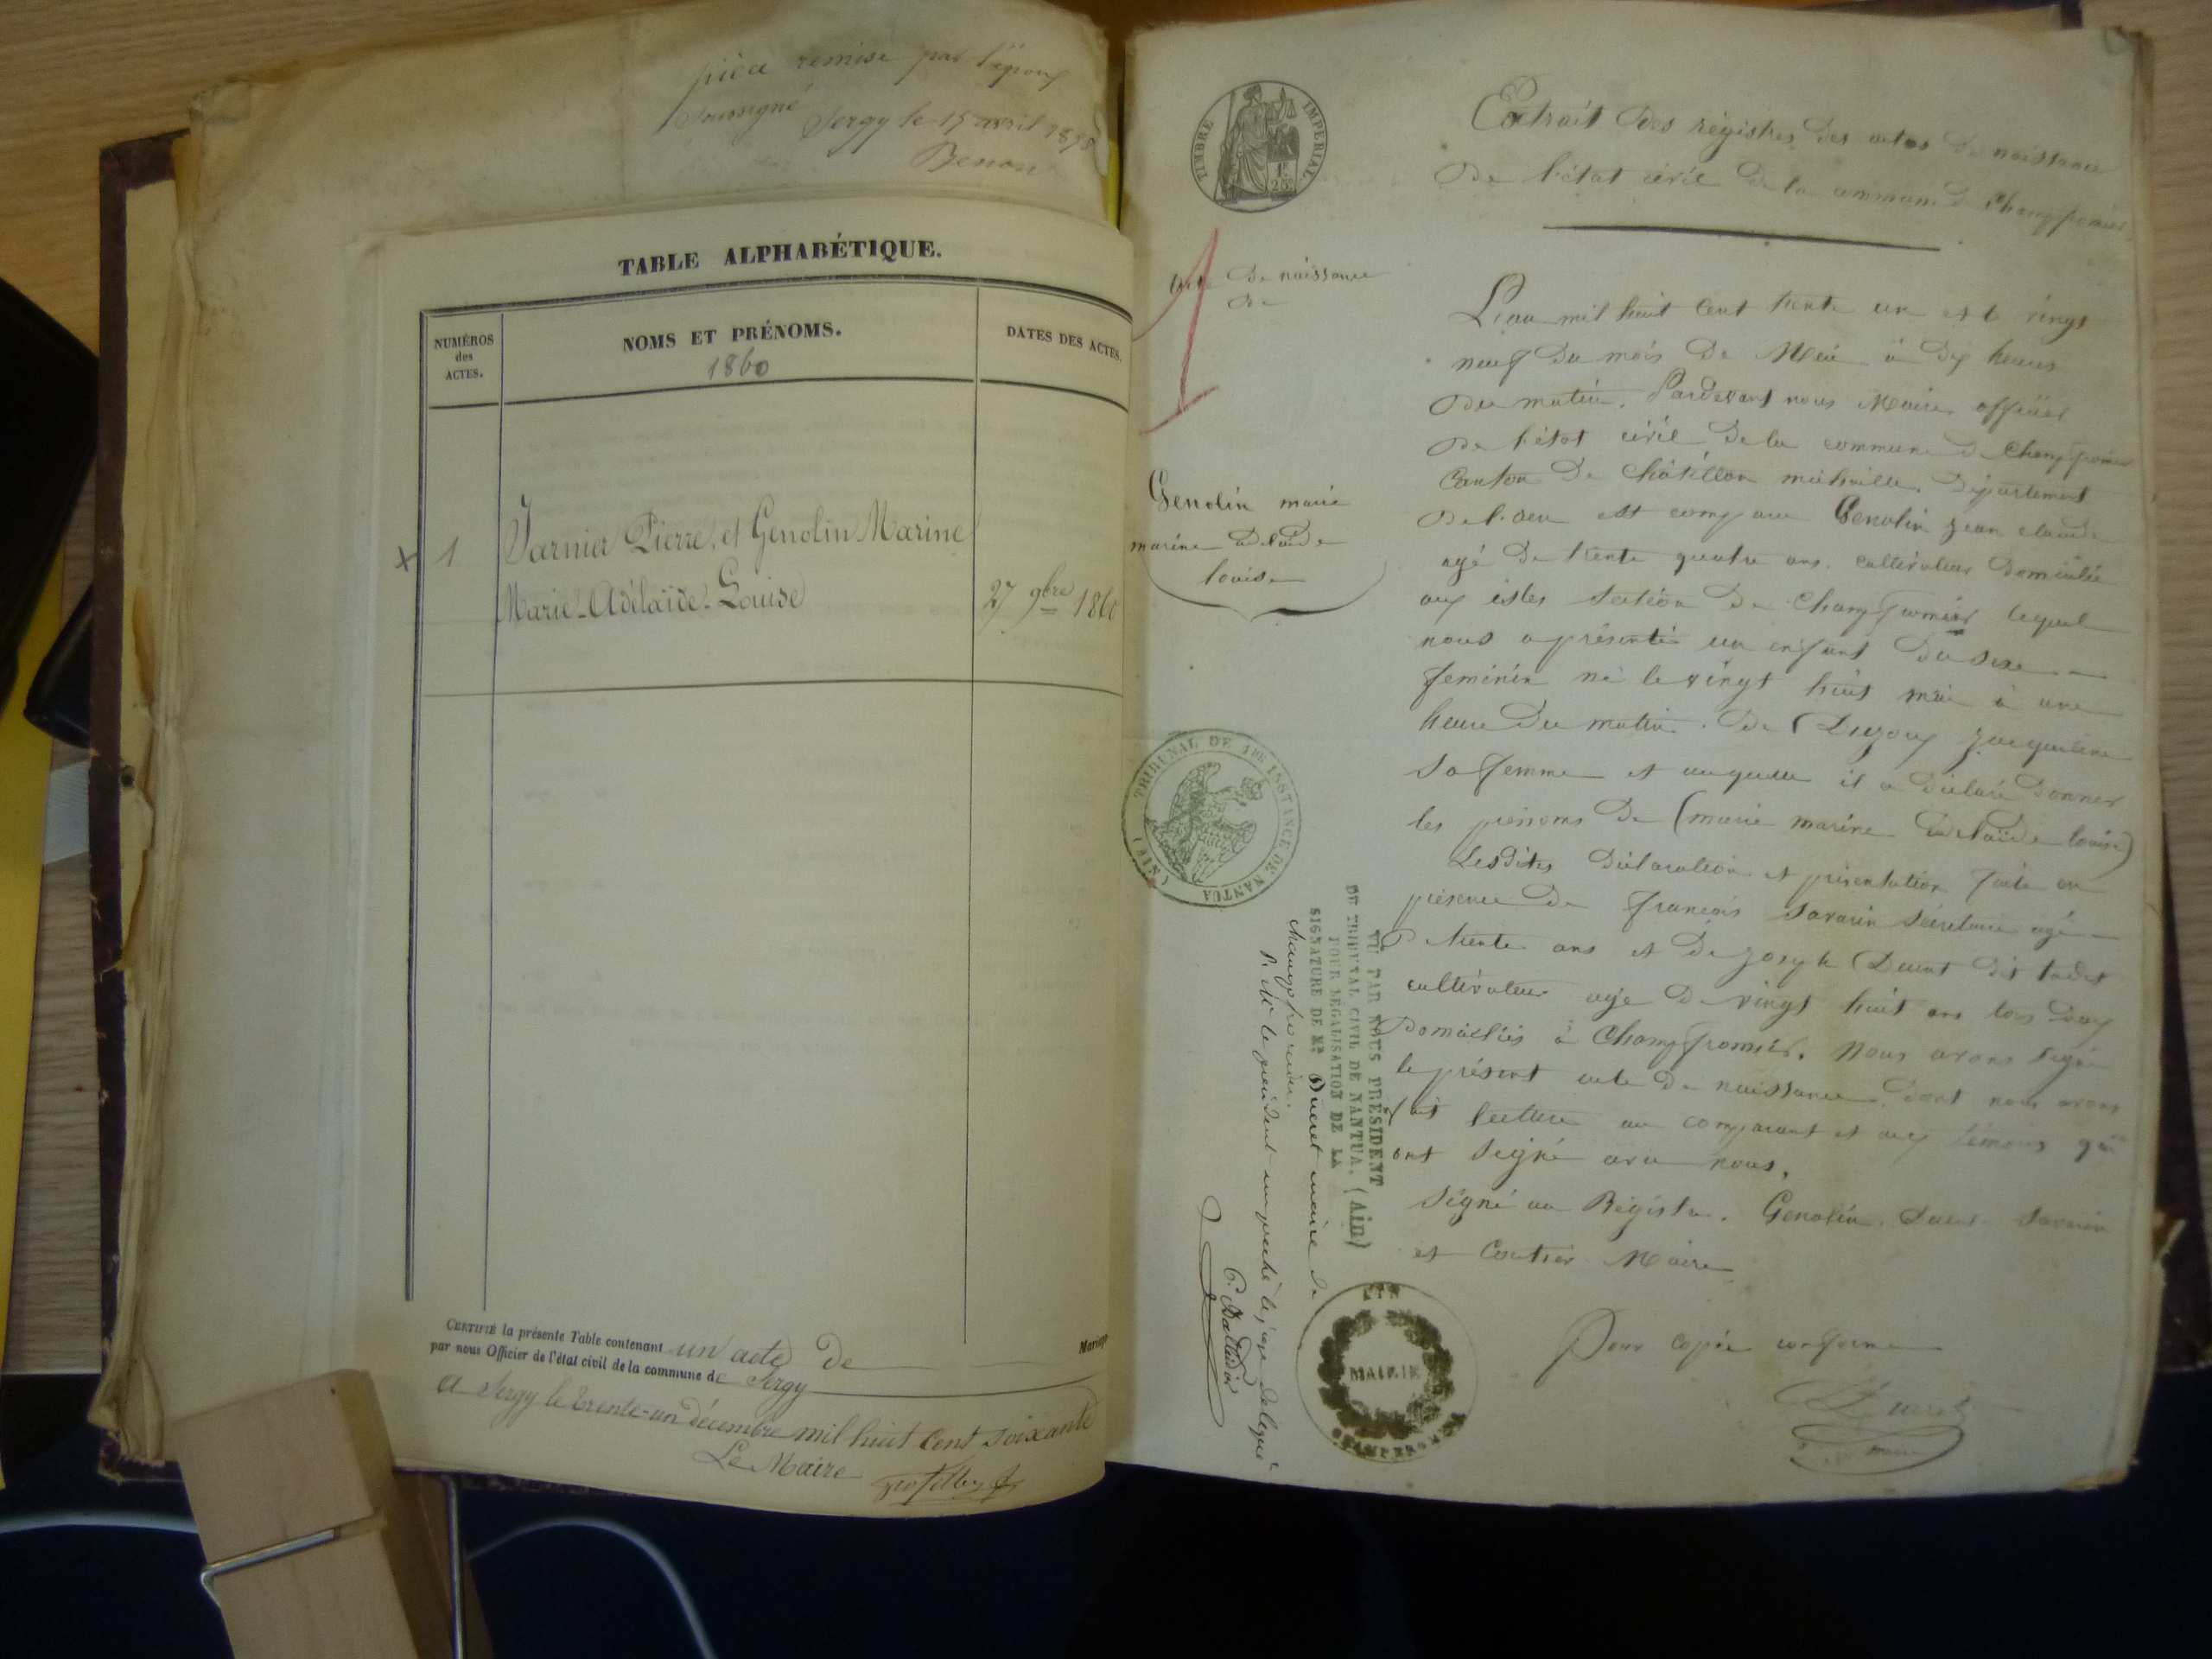 pièce remise par l'époux
soussigné Sergy le 15 avril
Benoit
TABLE ALPHABÉTIQUE.
NUMÉROS
des
ACTES.
NOMS ET PRÉNOMS.
1860
DATES DES ACTES.
1
Jarnier Pierre, et Genolin Marine
Marie-Adélaïde-Louise
27 9bre 1860
CERTIFIÉ la présente Table contenant un acte de Mariage
par nous Officier de l'état civil de la commune de Sergy
a Sergy le trente-un décembre mil huit cent soixante
Le Maire
TIMBRE IMPERIAL
1F
25C
Extrait des régistres des actes de naissance
de l'état civil de la commune de Champfromier
acte de naissance
de
Genolin marie
marine adelaide
louise
L'an mil huit cent trente un et le vingt
neuf du mois de Mai à dix heures
du matin. Pardevant nous Maire officier
de l'état civil de la commune de Champfromier
canton de Châtillon michaille, département
de l'ain est comparu Genolin jean claude
agé de trente quatre ans. cultivateur domicilié
aux isles section de Champfromier lequel
nous a présenté un enfant du sexe
feminin né le vingt huit mai à une
heure du matin. de jacqueline
sa femme et auquelle il a déclaré donner
les prénoms de (marie marine adelaïde louise)
Lesdites déclaration et présentation faite en
présence de françois savarin sécretaire agé
de trente ans et de joseph Ducret dit
cultivateur agé de vingt huit ans tous deux
domiciliés à Champfromier. Nous avons signé
le présent acte de naissance dont nous avons
fait lecture au comparant et aux témoins qui
ont signé avec nous.
signé au Régistre. Genolin. Ducret. Savarin
et Coutier Maire
Pour copie conforme
Ducret
maire
TRIBUNAL DE 1ERE INSTANCE DE NANTUA (AIN)
VU PAR NOUS PRÉSIDENT
DU TRIBUNAL CIVIL DE NANTUA. (AIN)
POUR LÉGALISATION DE LA
SIGNATURE DE Mr Ducret maire de
Champfromier.
P. Mr le président empeché le juge délégué
AIN
MAIRIE
CHAMPFROMIER